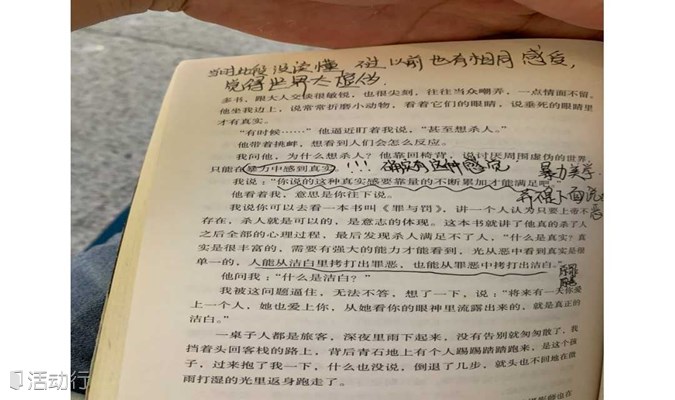 当时此段没读懂 不过以前也有相同感受，
觉得世界太虚伪.
多书，跟大人交谈很敏锐，也很尖刻，往往当众嘲弄，一点情面不留。
他坐我边上，说常常折磨小动物，看着它们的眼睛，说垂死的眼睛里
才有真实。
“有时候……”他逼近盯着我说，“甚至想杀人。”
他带着挑衅，想看到人们会怎么反应。
我问他，为什么想杀人？他靠回椅背，说讨厌周围虚伪的世界，
只能在暴力中感到真实。!!! 确实有这种感觉
我说：“你说的这种真实感要靠量的不断累加才能满足吧。”
暴力美学
他看着我，意思是你往下说。
我说你可以去看一本书叫《罪与罚》，讲一个人认为只要上帝不
存在，杀人就是可以的，是意志的体现。这本书就讲了他真的杀了人
之后全部的心理过程，最后发现杀人满足不了人，“什么是真实？真
实是很丰富的，需要有强大的能力才能看到，光从恶中看到真实是很
单一的，人能从洁白里拷打出罪恶，也能从罪恶中拷打出洁白。”
他问我：“什么是洁白？”
我被这个问题逼住，无法不答，想了一下，说：“将来有一天你爱
上一个人，她也爱上你，从她看你的眼神里流露出来的，就是真正的
洁白。”
一桌子人都是旅客，深夜里雨下起来，没有告别就匆匆散了，我
挡着头回客栈的路上，背后青石地上有个人踢踢踏踏跑来，是这个孩
子，过来抱了我一下，什么也没说，倒退了几步，就头也不回地在微
雨打湿的光里返身跑走了。
活动行